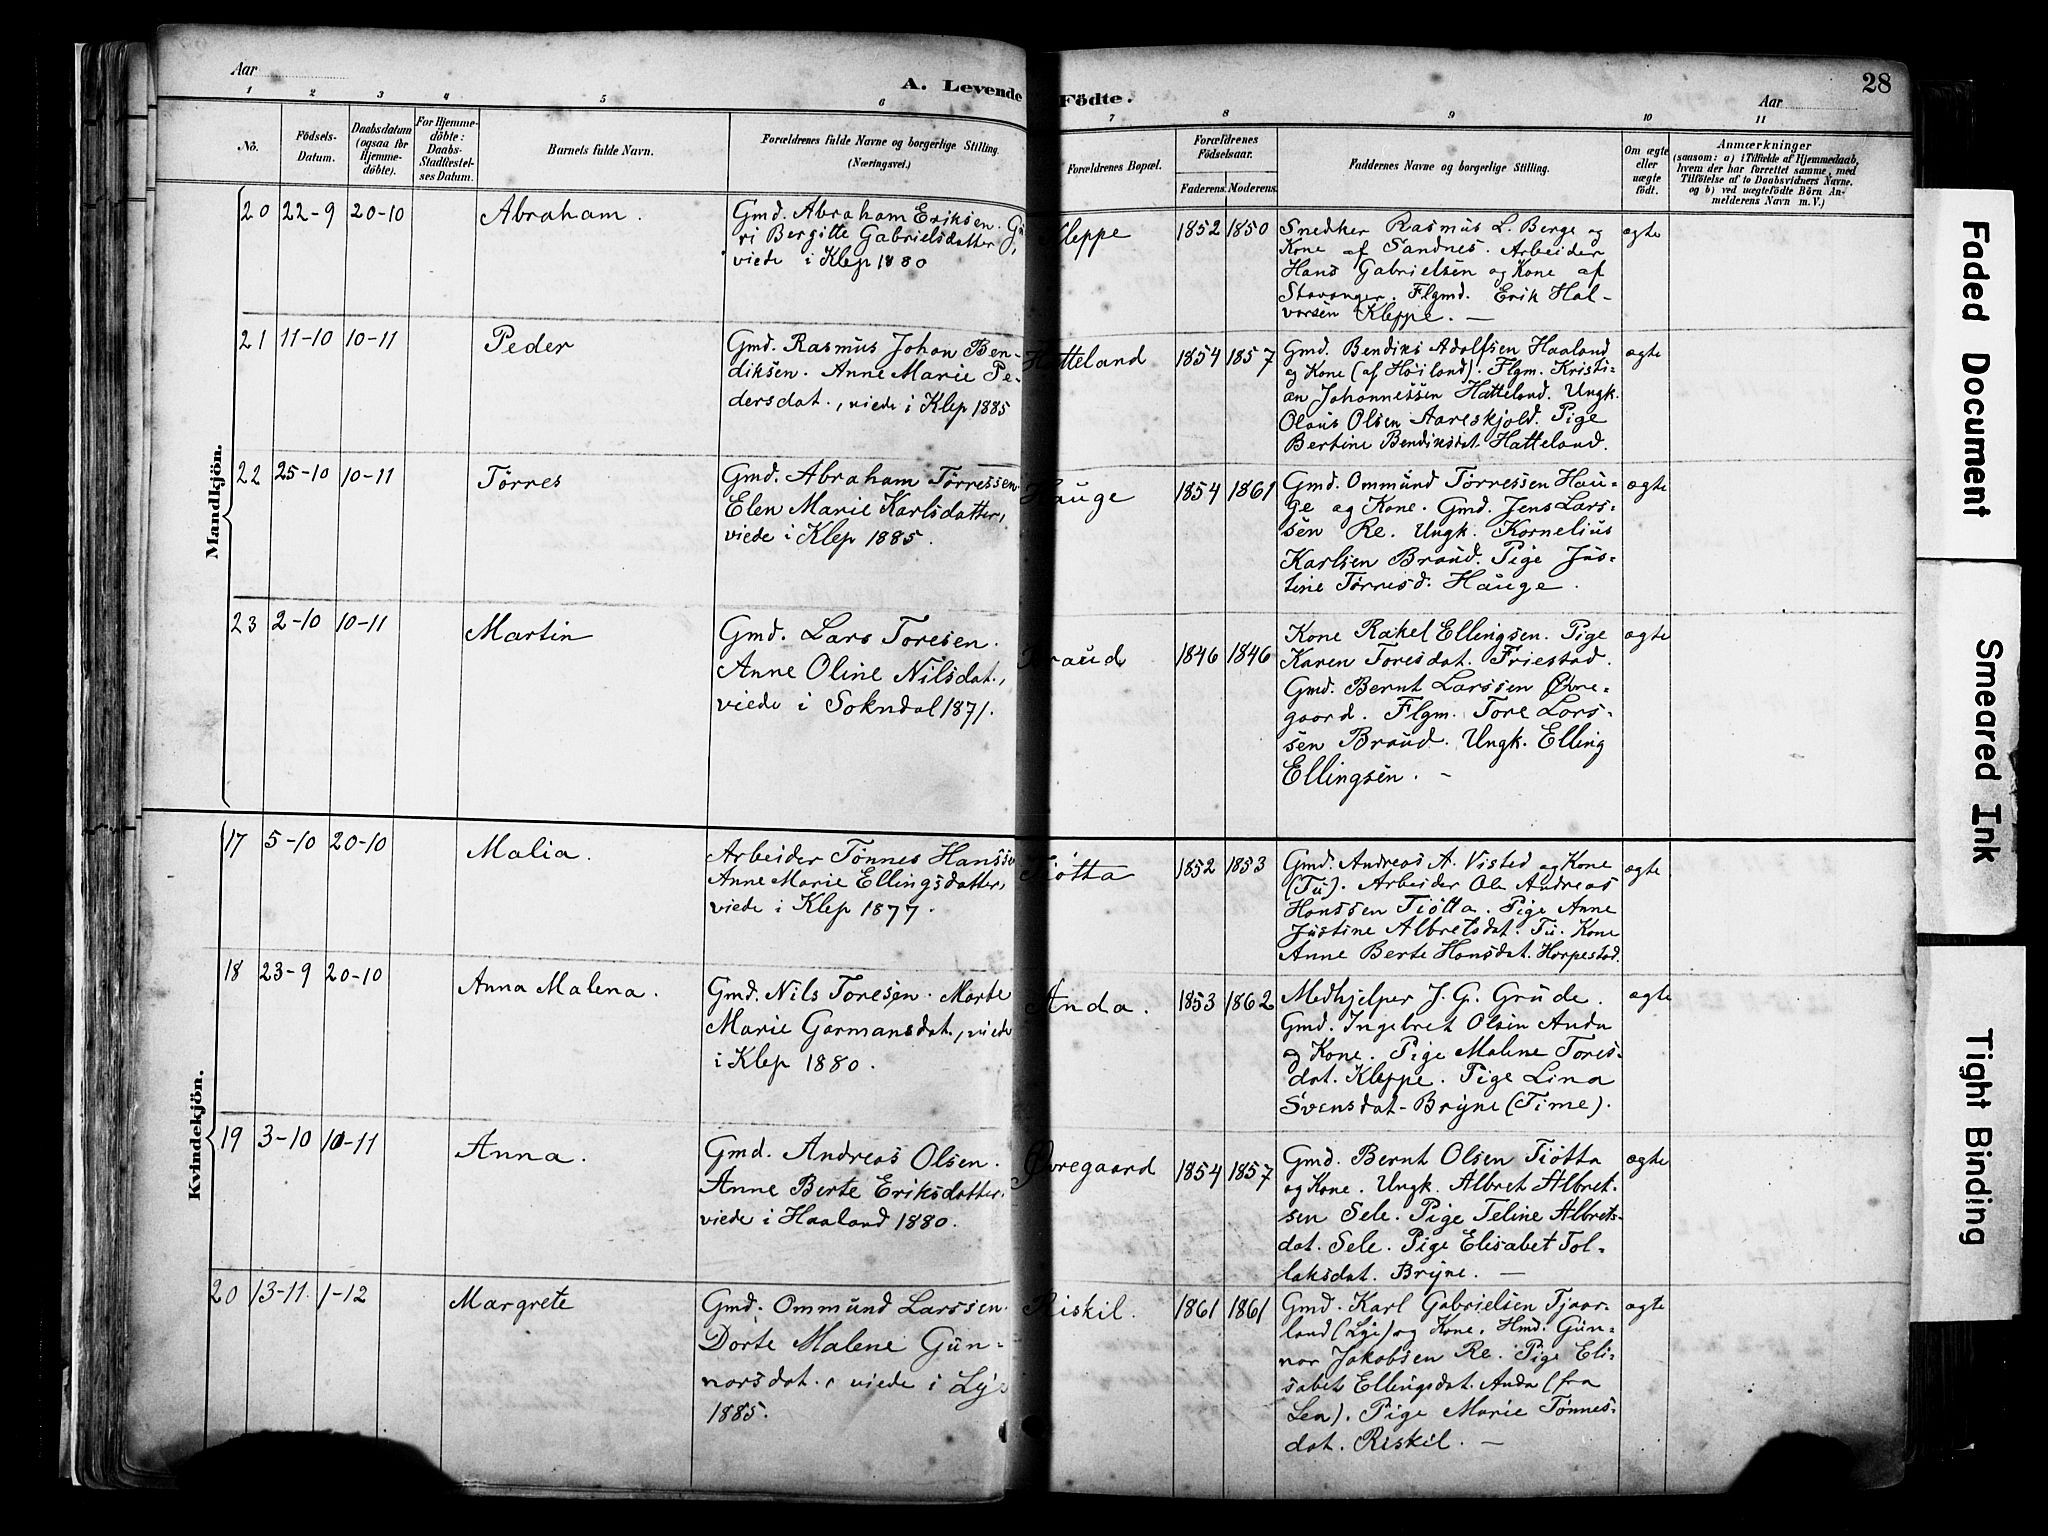 Aar
A. Levende Födte.
Aar
28
1 2 3 4 5 6 7 8 9 10 11
Nô.
Födsels-
Datum.
Daabsdatum
(ogsaa for
Hjemme-
döbte).
For Hjemme-
döbte:
Daabs-
Stadfæstel-
ses Datum.
Barnets fulde Navn.
Forældrenes fulde Navne og borgerlige Stilling.
(Næringsvei.)
Forældrenes Bopæl.
Forældrenes
Födselsaar.
Faderens. Moderens.
Faddernes Navne og borgerlige Stilling.
Om ægte
eller
uægte
födt.
Anmærkninger
(saasom: a) i Tilfælde af Hjemmedaab,
hvem der har forrettet samme, med
Tilföielse af to Daabsvidners Navne,
og b) ved uægtefödte Börn An-
melderens Navn m. V.)
Mandkjön.
20 22-9 20-10 Abraham.
Gmd. Abraham Eriksen. Gu
ri Bergitte Gabrielsdatter,
viede i Klep 1880
Kleppe 1852 1850
Snedker Rasmus L. Berge og
Kone af Sandnes. Arbeider
Hans Gabrielsen og Kone af
Stavanger. Flgmd. Erik Hal-
vorsen Kleppe. —
ægte
21 11-10 10-11 Peder
Gmd. Rasmus Johan Ben-
diksen. Anne Marie Pe-
dersdat., viede i Klep 1885
Hatteland 1854 1857
Gmd. Bendiks Adolfsen Haaland
og Kone (af Höiland). Flgm. Kristi-
an Johannessen Hatteland. Ungk.
Olaus Olsen Aareskjold. Pige
Bertine Bendiksdat. Hatteland.
ægte
22 25-10 10-11 Tørres
Gmd. Abraham Tørressen.
Elen Marie Karlsdatter,
viede i Klep 1885.
Hauge 1854 1861
Gmd. Ommund Tørressen Hau-
ge og Kone. Gmd. Jens Lars-
sen Re. Ungk. Kornelius
Karlsen Braud. Pige Jus-
tine Tørresd. Hauge.
ægte
23 2-10 10-11 Martin
Gmd. Lars Toresen.
Anne Oline Nilsdat.,
viede i Sokndal 1871.
Braud 1846 1846
Kone Rakel Ellingsen. Pige
Karen Toresdat. Friestad.
Gmd. Bernt Larssen Øvre-
gaard. Flgm. Tore Lars-
sen Braud. Ungk. Elling
Ellingsen. -
ægte
Kvindekjön.
17 5-10 20-10 Malia.
Arbeider Tønnes Hanss
Anne Marie Ellingsdatter,
viede i Klep 1877.
Tiøtta 1852 1853
Gmd. Andreas A. Visted og Kone
(Tu). Arbeider Ole Andreas
Hanssen Tiøtta. Pige Anne
Justine Albretsdat. Tu. Kone
Anne Berte Hansdat. Horpestad.
ægte
18 23-9 20-10 Anna Malena.
Gmd. Nils Toresen. Marte
Marie Gormansdat., viede
i Klep 1880.
Anda. 1853 1862
Medhjelper J. G. Grude.
Gmd. Ingebret Olsen Anda
og Kone. Pige Malene Tores-
dat. Kleppe. Pige Lina
Svensdat- Bryne (Time).
ægte
19 3-10 10-11 Anna.
Gmd. Andreas Olsen.
Anne Berte Eriksdatter,
viede i Haaland 1880.
Øvregaard 1854 1857
Gmd. Bernt Olsen Tiøtta
og Kone. Ungk. Albret Albret-
sen Sele. Pige Teline Albrets-
dat. Sele. Pige Elisabet Tol-
laksdat. Bryne. —
ægte
20 13-11. 1-12 Margrete
Gmd. Ommund Larssen.
Dorte Malene Gun-
narsdat., viede i Lye
1885.
Riskil. 1861 1861
Gmd. Karl Gabrielsen Tjaar-
land (Lye) og Kone. Hmd. Gun-
nar Jakobsen Re. Pige Eli-
sabet Ellingsdat. Anda (fra
Len). Pige Marie Tønnes-
dat. Riskil. —
ægte
Faded Document
Smeared Ink
Tight Binding